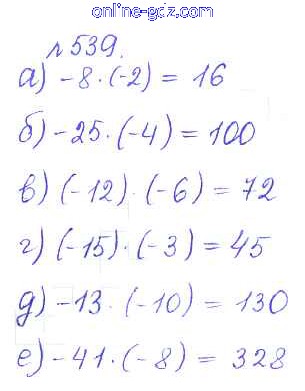 online-gdz.com
№539.
а) -8·(-2) = 16
б) -25·(-4) = 100
в) (-12)·(-6) = 72
г) (-15)·(-3) = 45
д) -13·(-10) = 130
е) -41·(-8) = 328